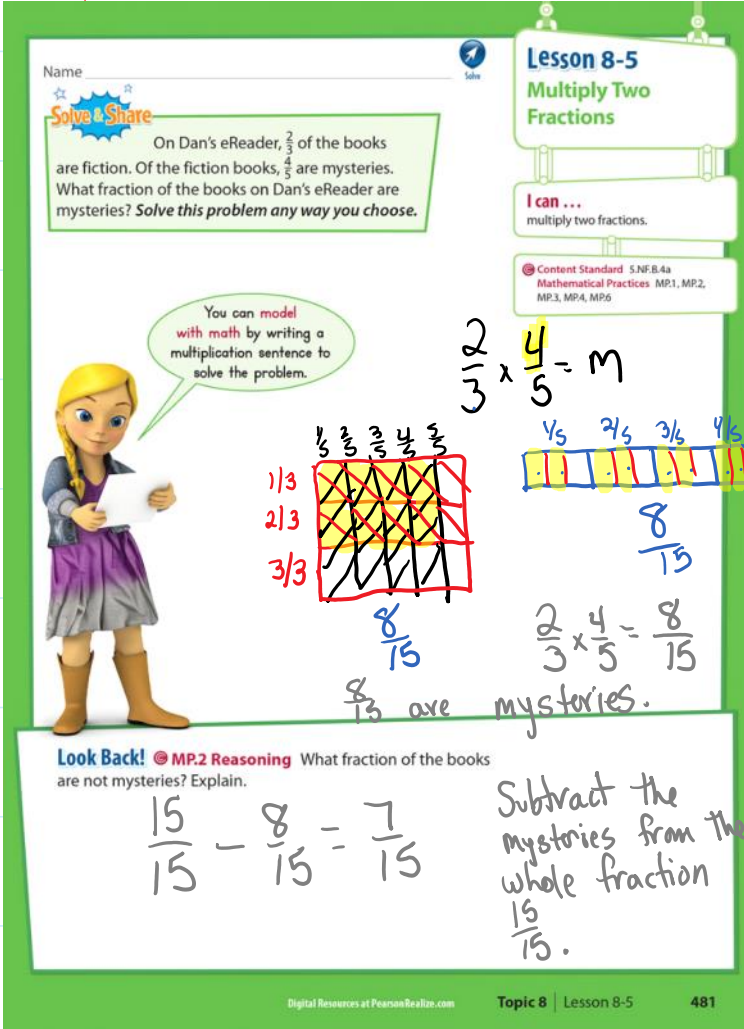 Lesson 8-5
Multiply Two
Fractions
Name
Solve
Solve & Share
On Dan's eReader, 2/3 of the books
are fiction. Of the fiction books, 4/5 are mysteries.
What fraction of the books on Dan's eReader are
mysteries? Solve this problem any way you choose.
I can ...
multiply two fractions.
Content Standard 5.NF.B.4a
Mathematical Practices MP.1, MP.2,
MP.3, MP.4, MP.6
You can model
with math by writing a
multiplication sentence to
solve the problem.
2/3 x 4/5 = m
1/5 2/5 3/5 4/5 5/5
1/3
2/3
3/3
8/15
1/5 2/5 3/5 4/5
8/15
2/3 x 4/5 = 8/15
8/15 are mysteries.
Look Back! MP.2 Reasoning What fraction of the books
are not mysteries? Explain.
15/15 - 8/15 = 7/15
Subtract the
mysteries from the
whole fraction
15/15.
Digital Resources at PearsonRealize.com
Topic 8 | Lesson 8-5
481